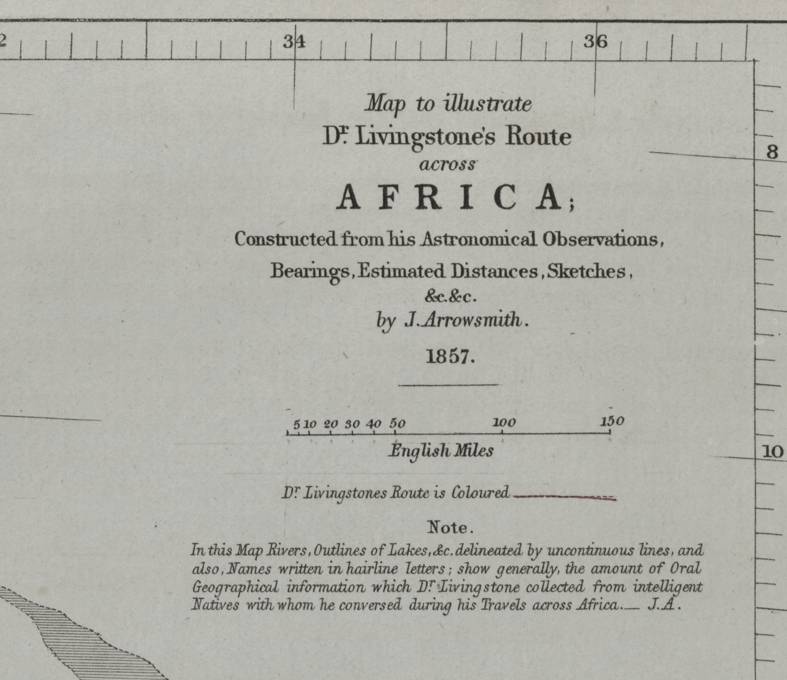 2 34 36
Map to illustrate
Dr. Livingstone's Route
across
8
AFRICA;
Constructed from his Astronomical Observations,
Bearings, Estimated Distances, Sketches,
&c.&c.
by J. Arrowsmith.
1857.
5 10 20 30 40 50 100 150
English Miles
10
Dr. Livingstones Route is Coloured
Note.
In this Map Rivers, Outlines of Lakes, &c. delineated by uncontinuous lines, and
also, Names written in hairline letters; show generally, the amount of Oral
Geographical information which Dr. Livingstone collected from intelligent
Natives with whom he conversed during his Travels across Africa.— J.A.